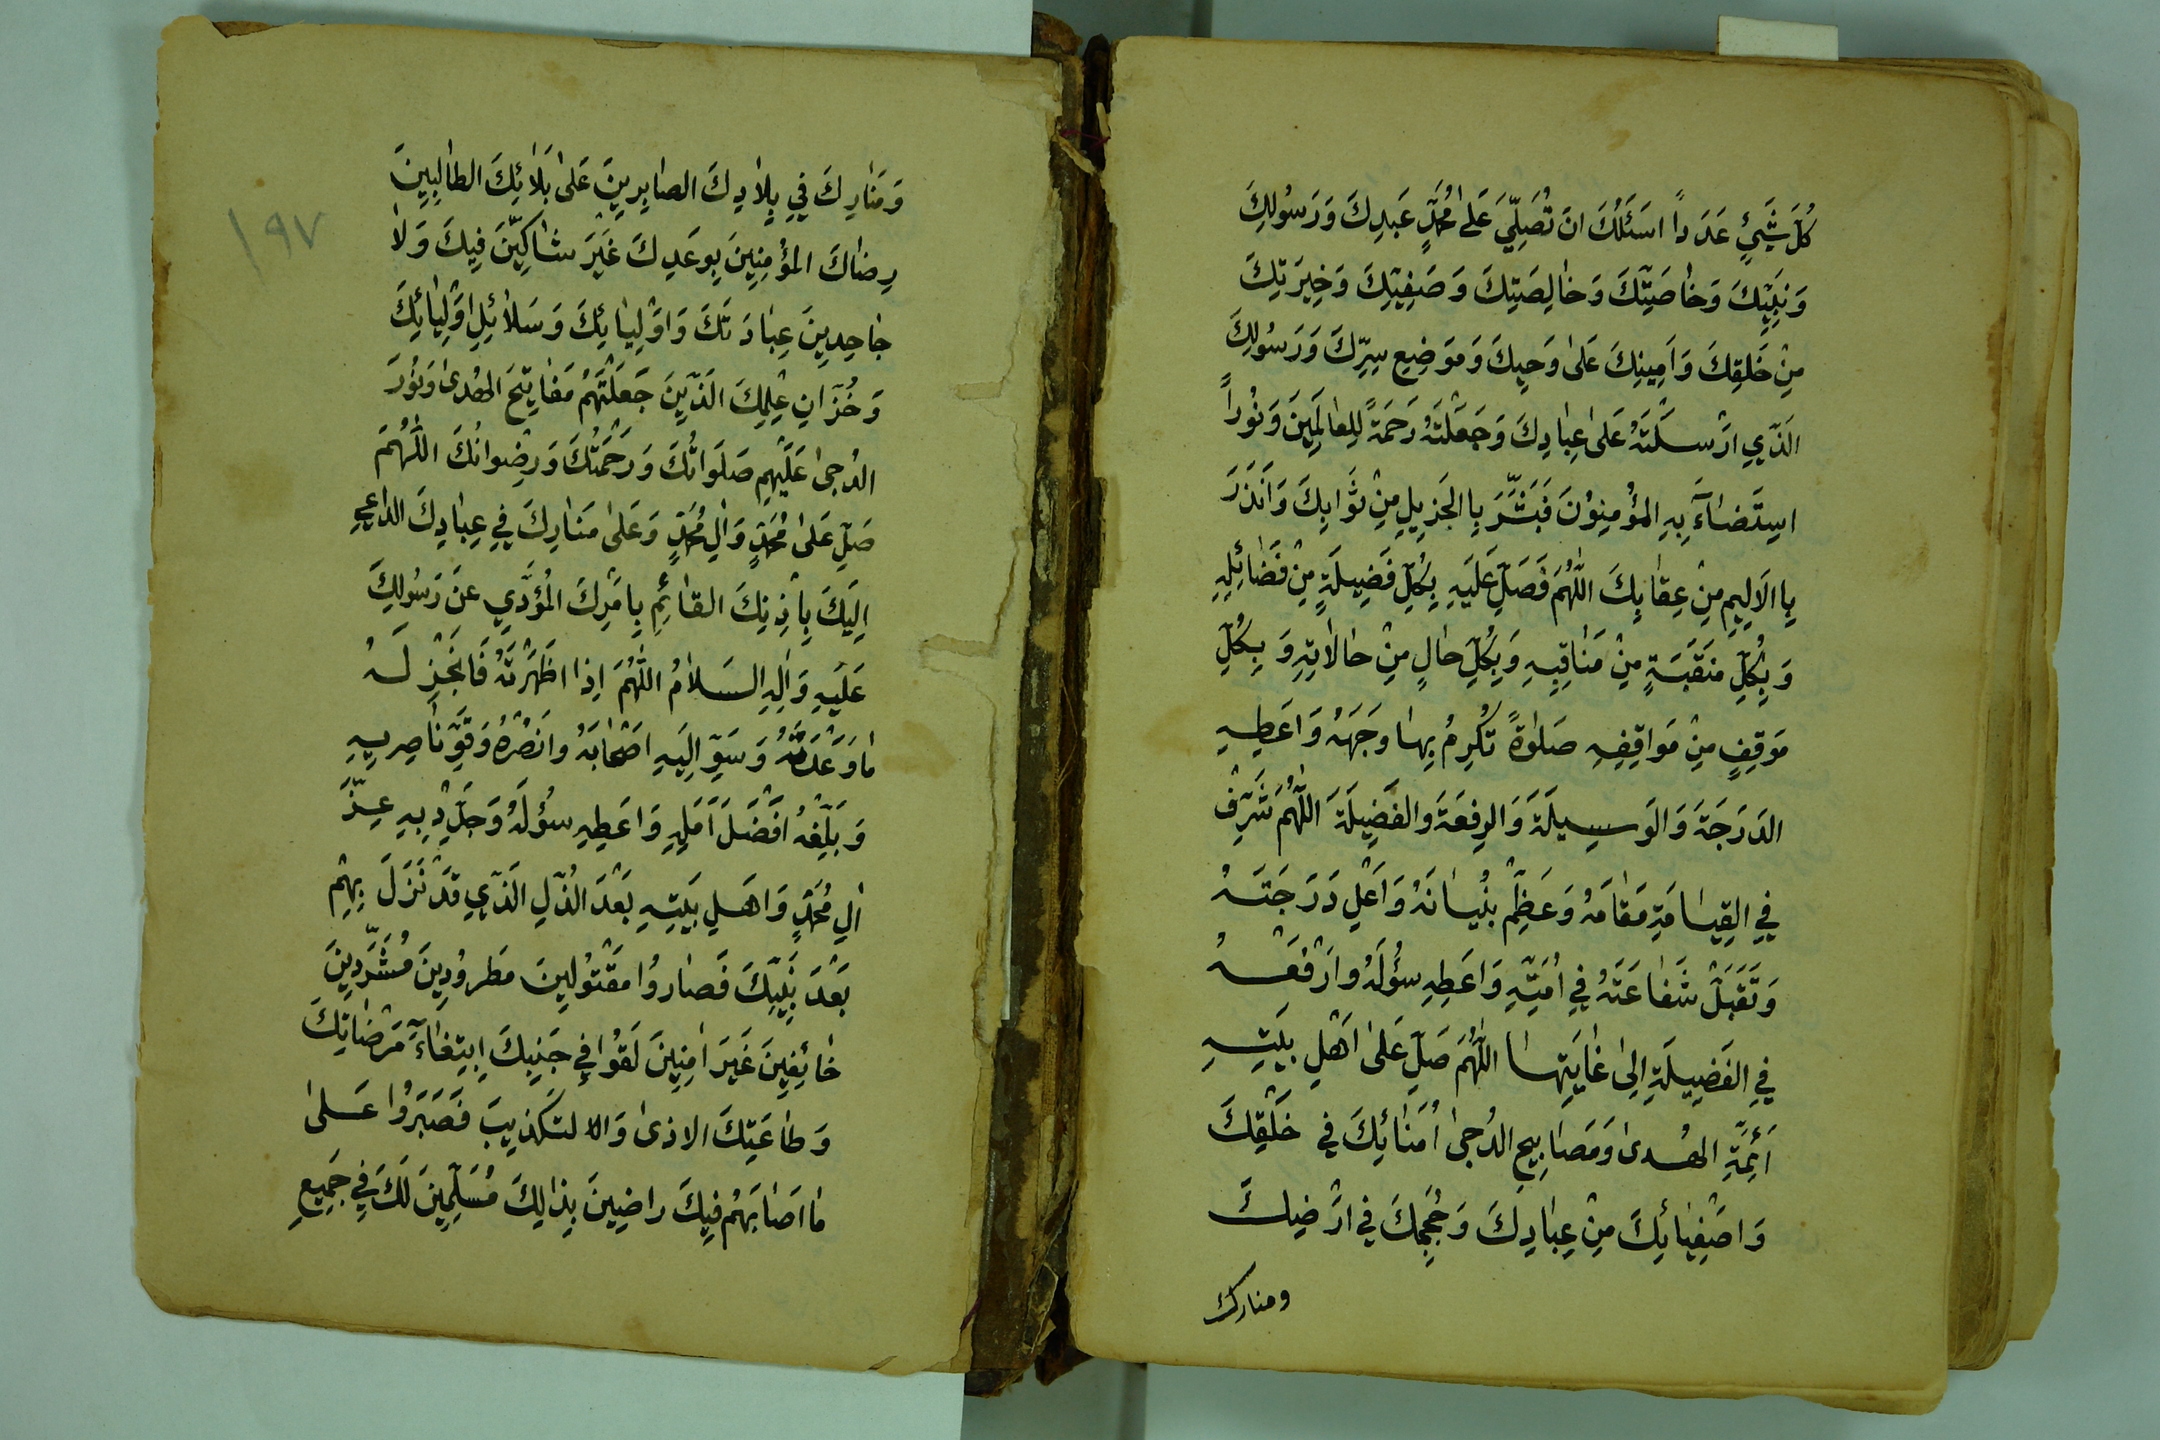 كُلَّ شَيْئٍ عَدَداً اسَئَلُكَ انَ تُصَلِّيَ عَلىٰ مُحَمَّدٍ عَبدِكَ وَرَسُولِكَ
وَنَبِيِّكَ وَخٰاصَّتِكَ وَخٰالِصَتِكَ وَصَفِيِّكَ وَخِيرَتِكَ
مِنْ خَلقِكَ وَاَمِينِكَ عَلىٰ وَحيِكَ وَمَوضِعِ سِرِّكَ وَرَسُولِكَ
الَّذي ارْسَلتَهُ عَلىٰ عِبٰادِكَ وَجَعَلْتَهُ رَحمَةً لِلعٰالَمِينَ وَنُوراً
اسِتَضٰاءَ بِهِ المؤُمِنوُنَ فَبَشَّرَ بِالجَزِيلِ مِنْ ثَوٰابِكَ وَاَنذَرَ
بِالاَلِيمِ مِنْ عِقٰابِكَ اللّٰهُمَّ فَصَلِّ عَلَيهِ بِكُلِّ فَضِيلَةٍ مِنْ فَضٰائِلِهِ
وَبِكُلِّ مَنقَبَةٍ مِنْ مَنٰاقِبِهِ وَبِكُلِّ حٰالٍ مِنْ حٰالاٰتِهِ وَبِكُلِّ
مَوقِفٍ مِنْ مَوٰاقِفِهِ صَلوٰةً تُكرِمُ بِهٰا وَجهَهُ وَاعَطِهِ
الدَرَجَةَ وَالوَسيلَةَ وَالرِفعَةَ وَالفَضِيلَةَ اللّٰهُمَّ شَرِّفْ
فِي القِيٰامَةِ مَقٰامَهُ وَعَظِّمْ بُنْيٰانَهُ وَاَعْلِ دَرَجَتَهُ
وَتَقَبَّلْ شَفٰاعَتَهُ فِي اُمَّتِهِ وَاعَطِهِ سُؤلَهُ وارْفَعْهُ
فِي الفَضِيلَةِ اِلىٰ غٰايَتِهٰا اللّٰهُمَّ صَلِّ عَلىٰ اَهْلِ بَيتِهِ
اَئِمَّةِ الهُدىٰ وَمَصٰابِيحِ الدُجىٰ اُمَنٰائِكَ فِي خَلْقِكَ
وَاصَفِيٰائِكَ مِنْ عِبٰادِكَ وَحُجَجِكَ فِي ارْضِكَ
ومنارك
١٩٧
وَمَنٰارِكَ فِي بِلاٰدِكَ الصٰابِرِينَ عَلىٰ بَلاٰئِكَ الطٰالِبِينَ
رِضٰاكَ المؤُمِنِينَ بِوَعدِكَ غَيرَ شٰاكِّينَ فِيكَ وَلاٰ
جٰاحِدِينَ عِبٰادَتَكَ وَاوْلِيٰائِكَ وَسَلاٰئِلِ اوْلِيٰائِكَ
وَخُزّٰانِ عِلمِكَ الَّذينَ جَعَلْتَهُمْ مَفٰاتِيحَ الهُدىٰ وَنُورَ
الدُجىٰ عَلَيهِمِ صَلَوٰاتُكَ وَرَحْمَتُكَ وَرِضْوٰانُكَ اللّٰهُمَّ
صَلِّ عَلىٰ مُحَمَّدٍ وَآلِ مُحَمَّدٍ وَعَلىٰ مَنٰارِكَ فِي عِبٰادِكَ الدٰاعِي
اِلَيكَ بِاذِنِكَ القٰائِمِ بِامَرِكَ المُؤَدّي عَنْ رَسُولِكَ
عَلَيهِ وَآلِهِ السَلاٰمُ اللّٰهُمَّ اِذٰا اظَهَرْتَهُ فَانَجِزْ لَهُ
مٰا وَعَدْتَهُ وَسَوِّ اِلَيهِ اصَحٰابَهُ وانَصُرْهُ وَقَوِّ نٰاصِرِيهِ
وَبَلِّغهُ افَضَلَ اَمَلِهِ وَاعَطِهِ سؤُلَهُ وَجَدِّدْ بِهِ عِزَّ
آلِ مُحَمَّدٍ وَاهَلِ بَيتِهِ بَعْدَ الذُلِّ الَّذي قَدْ نَزَلَ بِهِمْ
بَعْدَ نَبِيِّكَ فَصٰارُوا مَقْتُولِينَ مَطرُودِينَ مُشَرَّدِينَ
خٰائِفِينَ غَيرَ اٰمِنِينَ لَقَوْا فِي جَنبِكَ اِبتِغٰاءَ مَرْضٰاتِكَ
وَطٰاعَتِكَ الاذىٰ وَالالتَكذِيبَ فَصَبَرُوا عَلىٰ
مٰا اصَابَهُمْ فِيكَ رٰاضِينَ بِذٰالِكَ مُسَلِّمِينَ لَكَ فِي جَمِيعِ